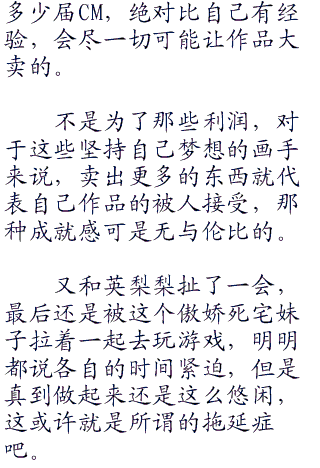 多少届CM，绝对比自己有经
验，会尽一切可能让作品大
卖的。
不是为了那些利润，对
于这些坚持自己梦想的画手
来说，卖出更多的东西就代
表自己作品的被人接受，那
种成就感可是无与伦比的。
又和英梨梨扯了一会，
最后还是被这个傲娇死宅妹
子拉着一起去玩游戏，明明
都说各自的时间紧迫，但是
真到做起来还是这么悠闲，
这或许就是所谓的拖延症
吧。